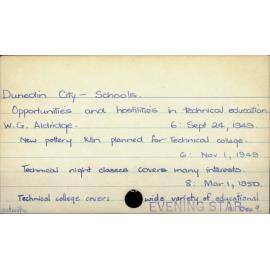 Dunedin City - Schools.
Opportunities and hostilities in technical education
W.G. Aldridge. 6: Sept 24, 1949.
New pottery kiln planned for Technical college.
6: Nov 1, 1949
Technical night classes covers many interests.
8: Mar 1, 1950.
Technical college covers wide variety of educational
EVENING STAR